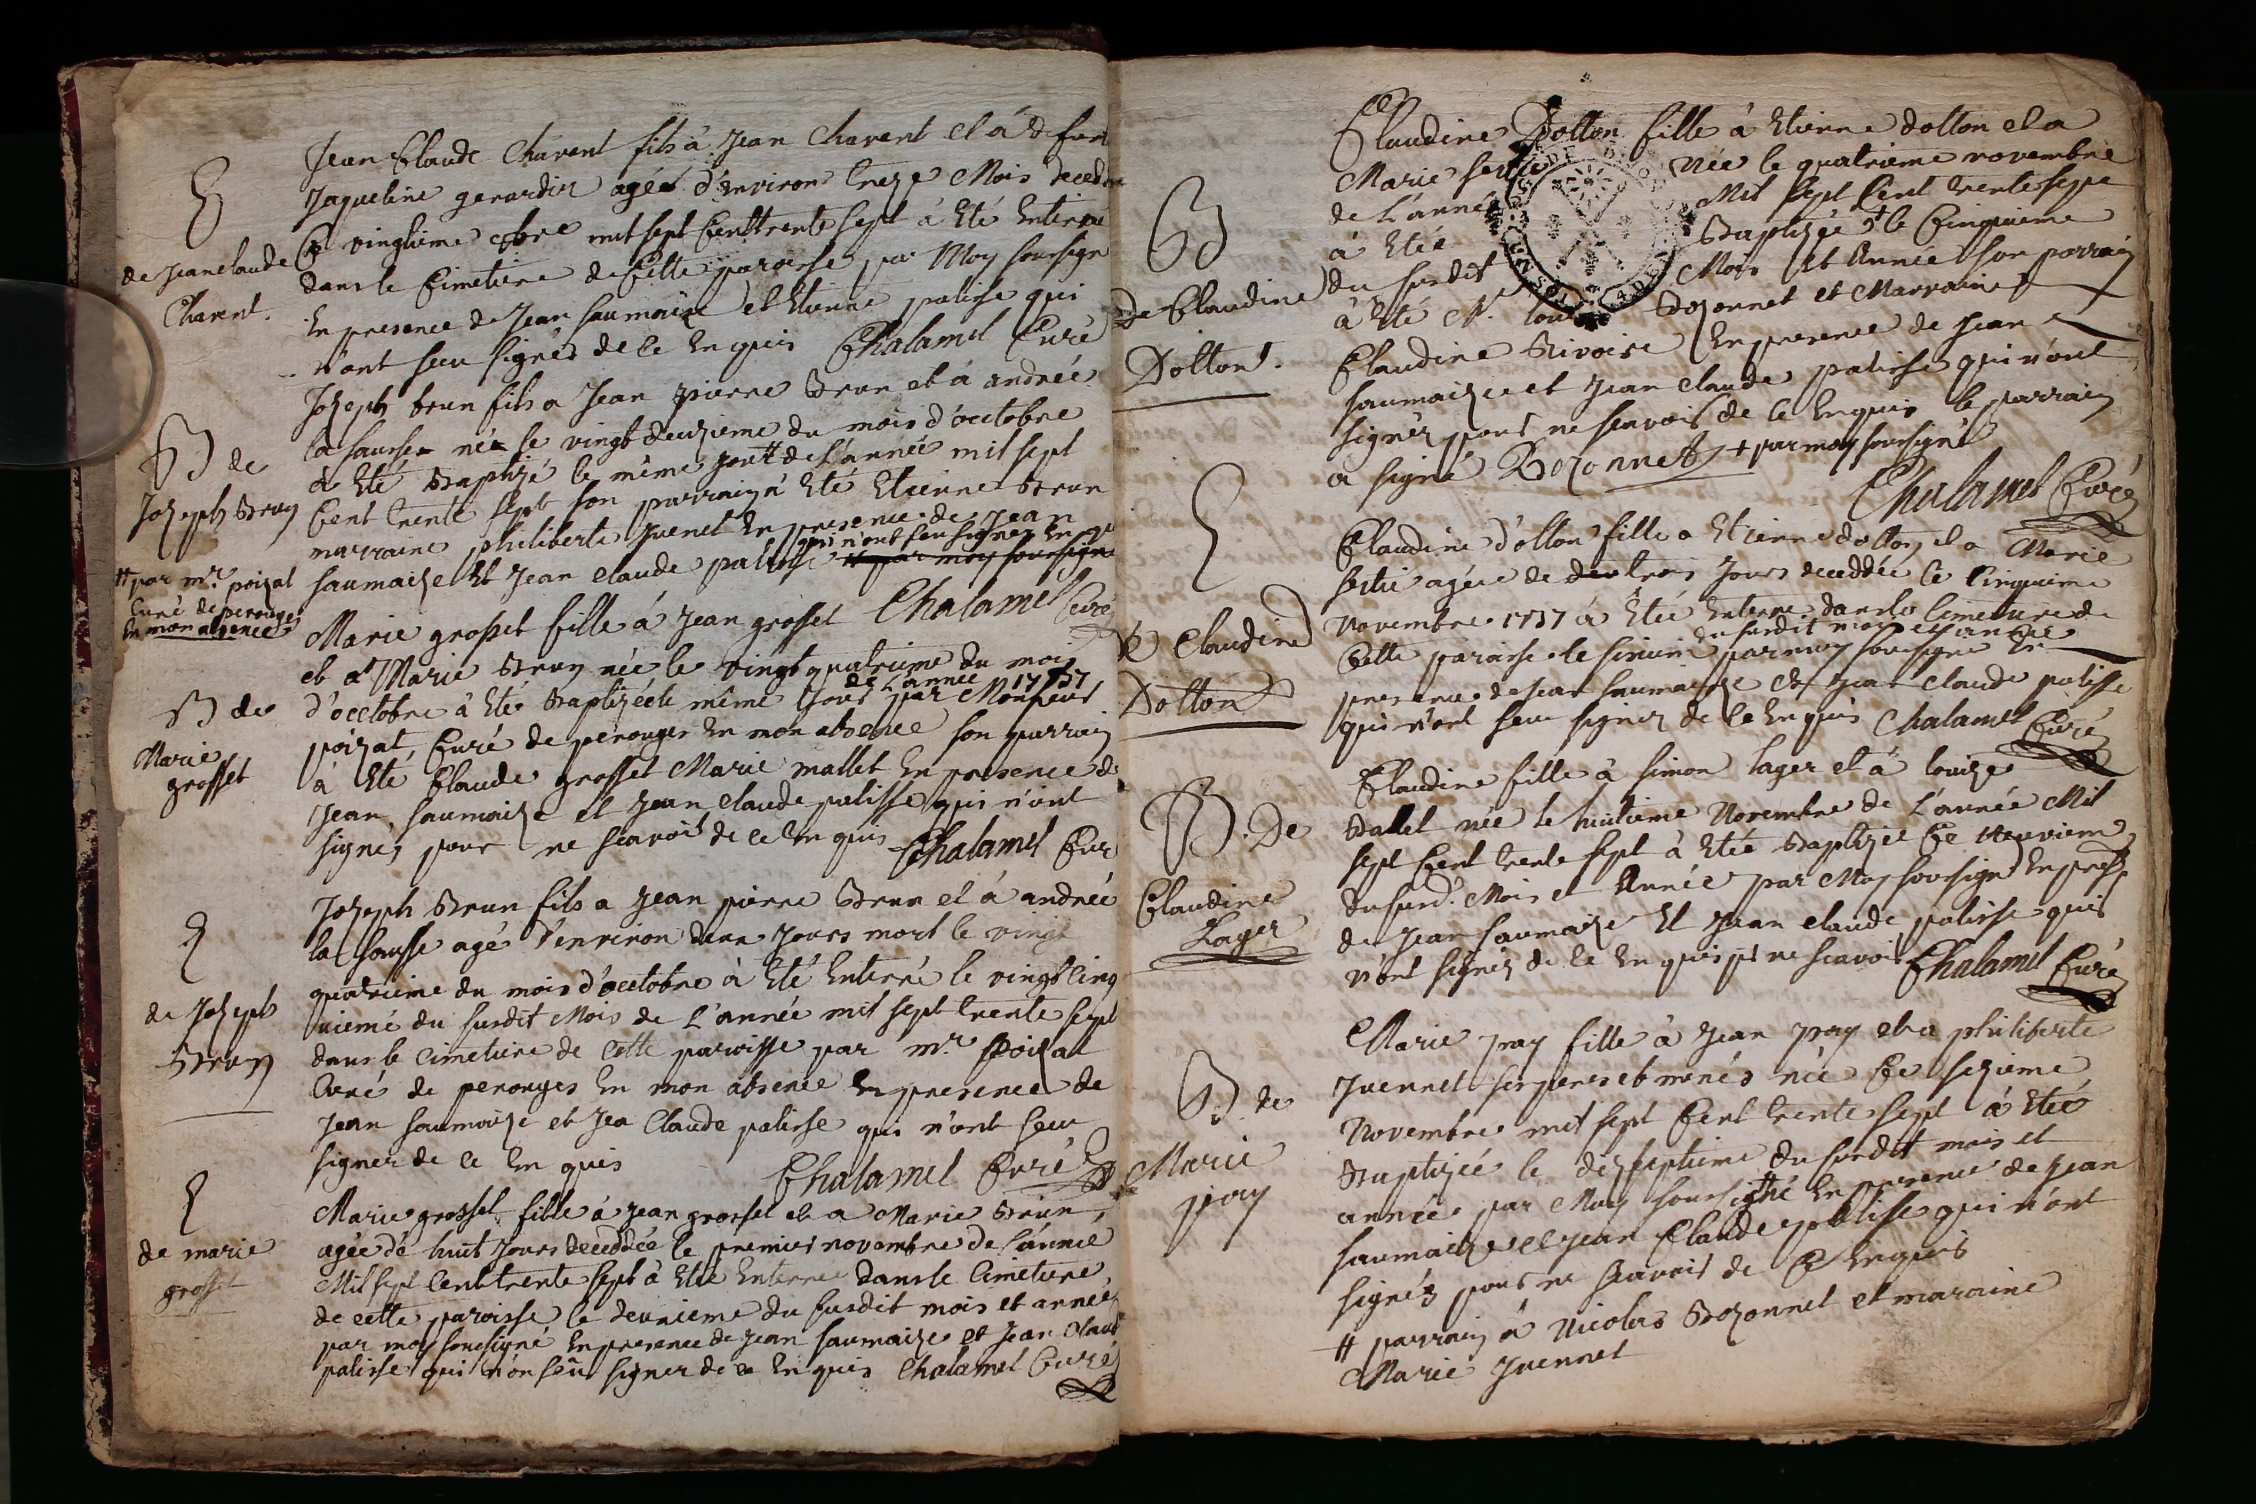 Jean Claude Charent fils à Jean Charent et à defun
Jaqueline gerardin agée d'environ treze Mois decedé
de Jean Claude
Charent.
Ce vingtieme 8bre mil sept Cent trente sept à Eté Enterré
dans le Cimetiere de Cette paroisse par Moy soussign
En presence de Jean saumaize et Etienne palisse qui
n'ont sceu signés de ce Enquis Chalamel Curé
B de
Joseph Brun
Joseph brun fils a Jean pierre Brun et à andrée
la sausse né le vingt deuxieme du mois d'octobre
à Eté Baptizé le même jour # de L'année mil sept
Cent trente sept son parrain à Eté Etienne Brun
marraine philiberte Juenet En presence de Jean
saumaize Et Jean claude palisse qui n'ont seu signer En qu
# par moy soussigné
Chalamel Curé
# par mr. poizat
Curé de perouges
En mon absence
B de
Marie
grosset
Marie grosset fille à Jean grosset
et à Marie Brun née le vingt quatrieme du mois
de L'année 1737
d'octobre à Eté Baptizée le même jour par Monsieur
poizat, Curé de perouges En mon absence son parrain
à Eté Claude grosset Marie mallet En presence de
Jean saumaize et Jean claude palisse qui n'ont
signés pour ne scavoir de ce Enquis Chalamel Cur
de Joseph
Brun
Joseph Brun fils a Jean pierre Brun et à andrée
la sausse agé d'environ deux jours mort le vingt
quatrieme du mois d'octobre à Eté Enterré le vingt cinq
uieme du susdit Mois de L'année mil sept trente sept
dans le cimetiere de Cette paroisse par mr. poizat
Curé de perouges En mon absence En presence de
Jean saumaize et Jea Claude palisse qui n'ont seu
signer de ce En quis Chalamel Curé
de marie
grosset
Marie grosset fille à Jean grosset et a Marie Brun
agée de huit jours deceddée le premier novembre de L'année
Mil sept Cent trente sept à Eté Enterrée dans le Cimetiere
de cette paroisse le deuxieme du susdit mois et année
par moy soussigné En presence de Jean saumaize et Jean Claud
palisse qui n'on seu signer de ce En quis Chalamel Curé
B
De Claudine
Dolton.
Claudine Dolton fille à Etienne dolton et a
Marie née le quatrieme novembre
de L'année Mil sept Cent trente sept
à Etée Baptizée + le Cinquieme
du susdit Mois Et Année son parrain
à Eté Bozonnet et Marraine
Claudine Rivoire En presence de Jean
saumaize et Jean Claude palisse qui n'ont
signéz pour ne scavoir de ce Enquis le parrain
a signé Bozonnet + par moy soussigné
Chalamel Curé
de Claudine
Dolton
Claudine d'olton fille a Etienne dolton et a Marie
agée de trois jours deceddée le Cinquieme
Novembre 1737 à Etée Enterre dans le Cimetiere de
Cette paroisse le sixieme du susdit mois et année par moy soussigne En
presence de Jean saumaize et Jean Claude palisse
qui n'ont seu signer de ce Enquis Chalamel Curé
B. De
Claudine
Lager
Claudine fille à simon lager et à louize
Ballet née le huitieme Novembre de L'année Mil
sept Cent trente sept à Etée Baptizée Ce Neuvieme
du susd. Mois et Année par Moy soussigné En pres
de Jean saumaize Et Jean claude palisse quis
n'ont signéz de ce En quis pr ne scavoir Chalamel Curé
B. de
Marie
pray
Marie pray fille à Jean pray et a philiberte
Juennet ses peres et merés née Ce sezieme
Novembre mil sept Cent trente sept à Etée
Baptizée le dix septieme du susdit mois et
année par Moy soussigné En presence de Jean
saumaize et Jean Claude palisse qui n'ont
signéz pour ne scavoir de Ce Enquis
# parrain à Nicolas Bozonnet et maraine
Marie Juennet